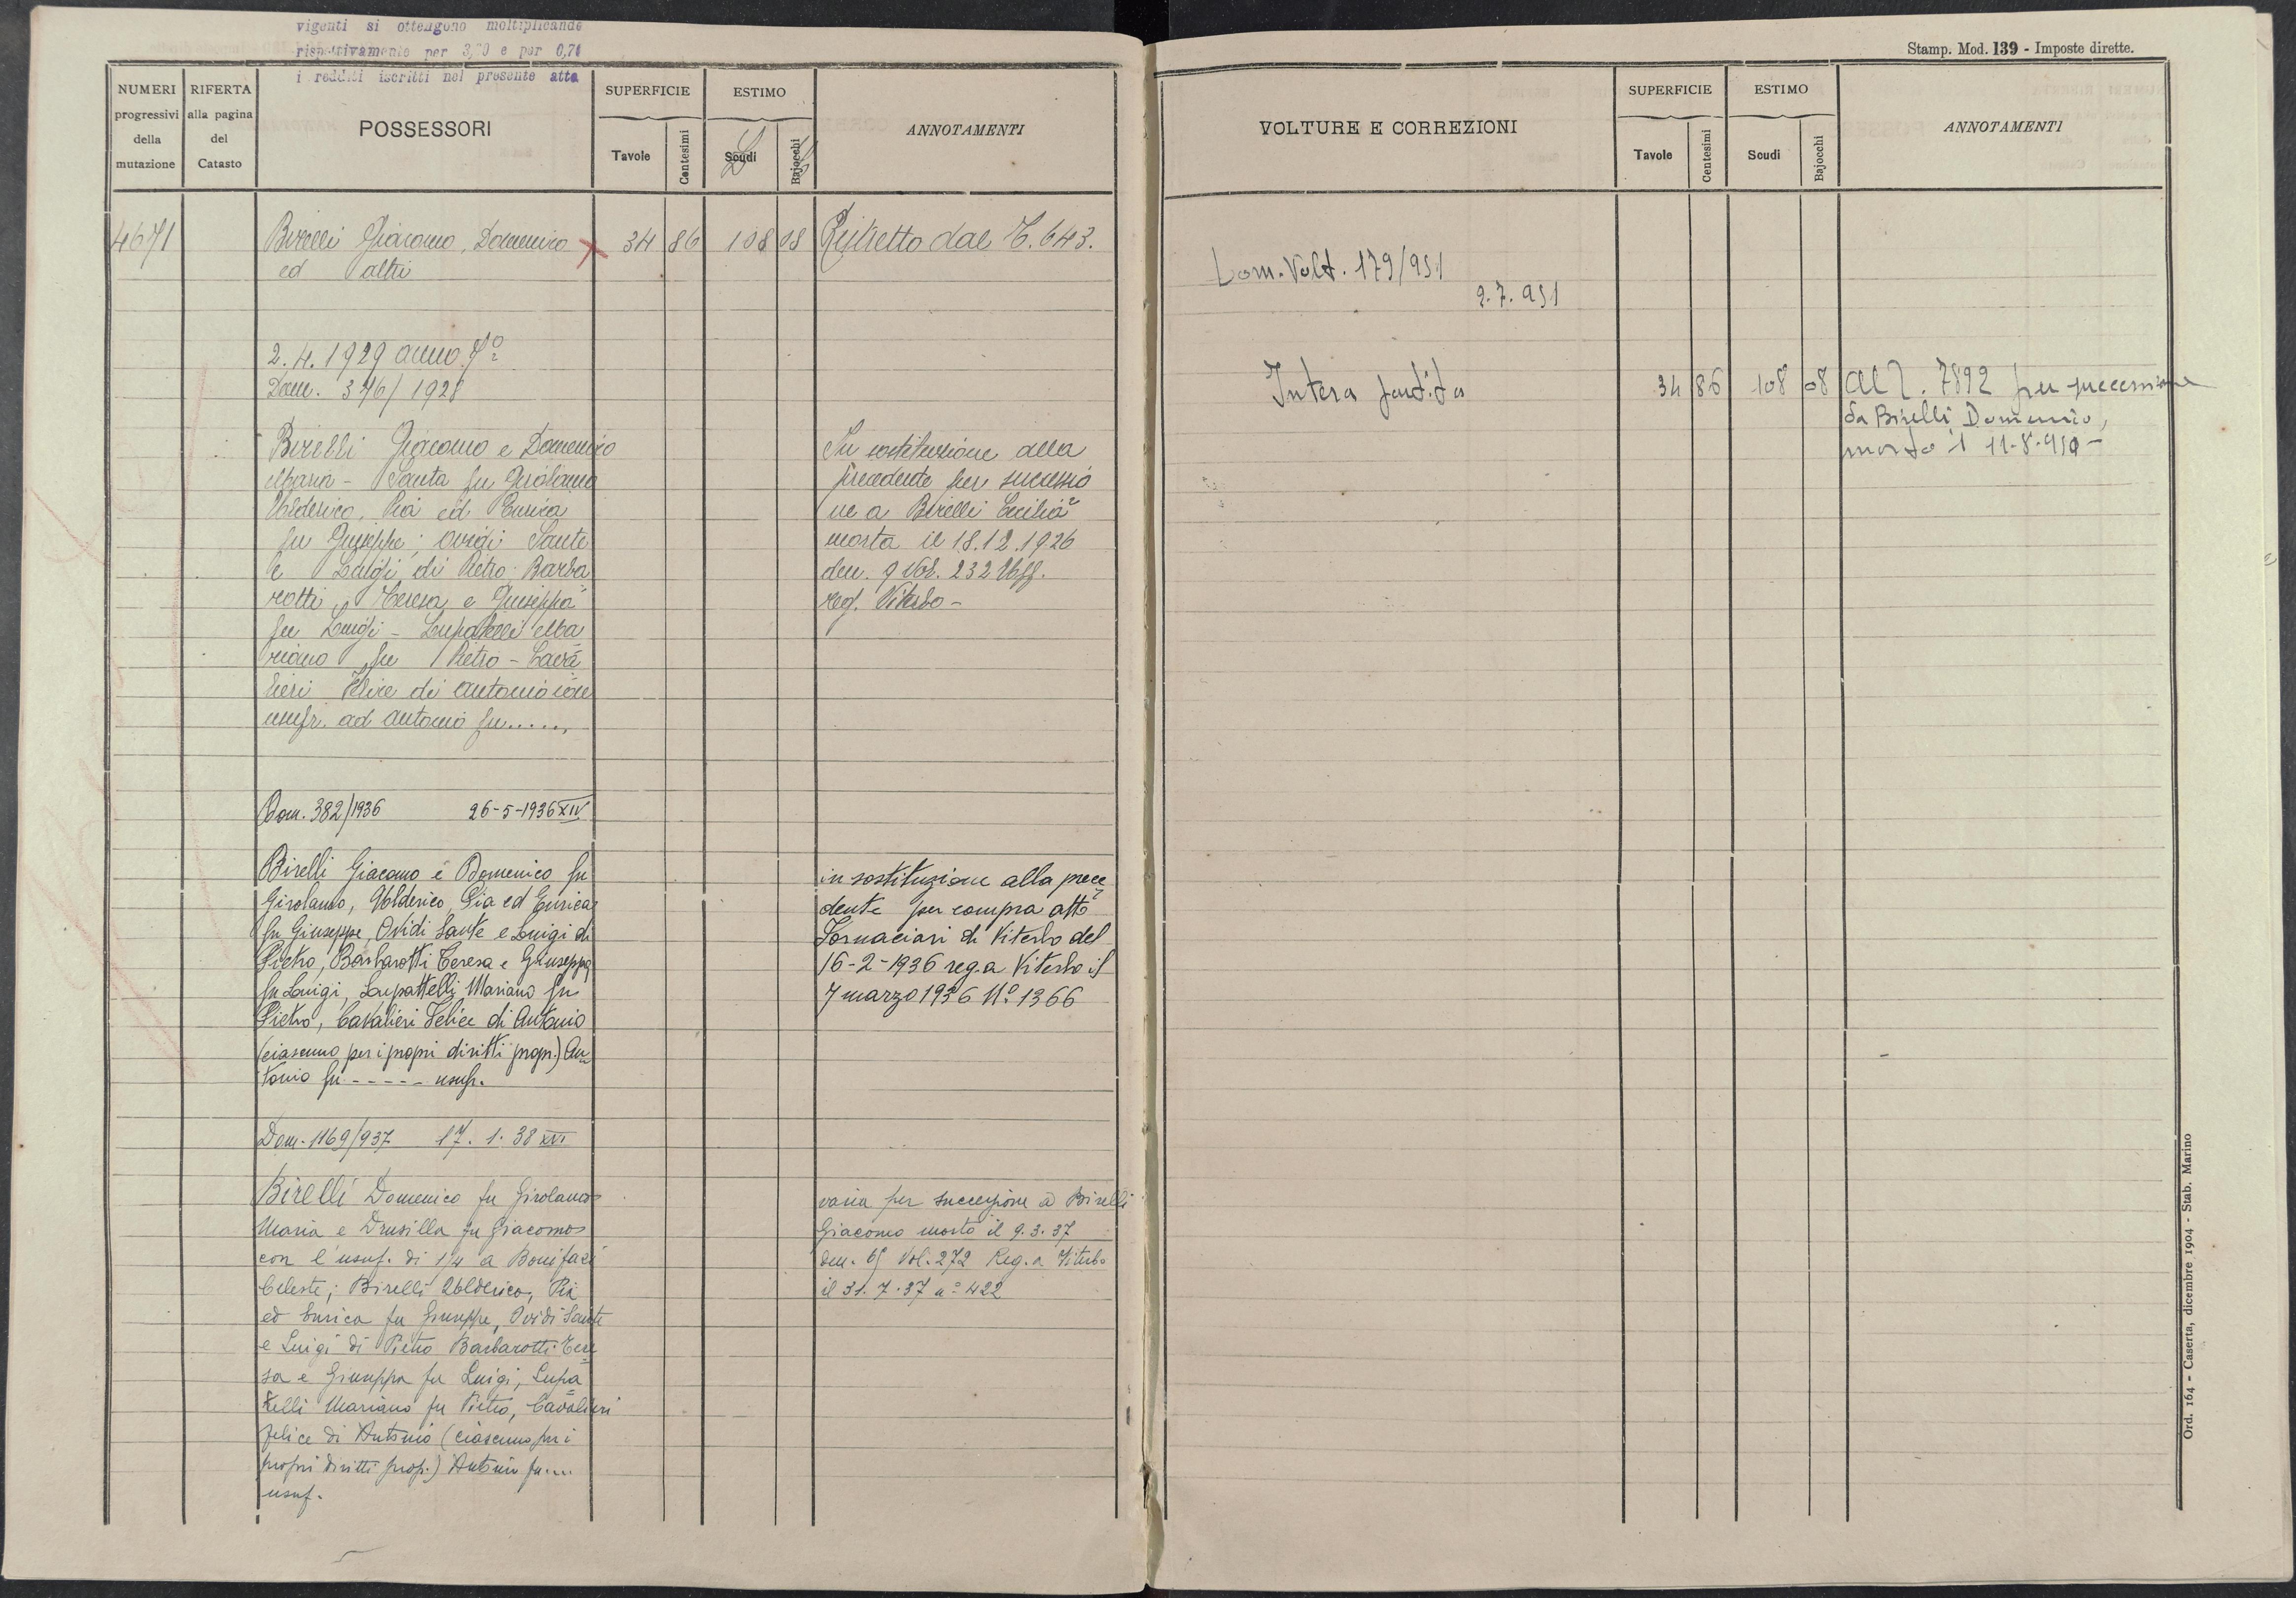 vigenti si ottengono moltiplicando
rispettivamente per 3,70 e per 0,70
i redditi iscritti nel presente atto
NUMERI
progressivi
della
mutazione
RIFERTA
alla pagina
del
Catasto
POSSESSORI
SUPERFICIE
Tavole
Centesimi
ESTIMO
Scudi
Bajocchi
ANNOTAMENTI
4671 Birelli Giacomo, Domenico 34 86 108 08 Ristretto dal T. 643.
ed altri
2.4.1929 anno 7º
Dom. 376/1928
Birelli Giacomo e Domenico
Maria - Santa fu Girolamo
Valderico, Pia ed Enrica
fu Giuseppe; Ovidi Sante
e Luigi di Pietro. Barba
rotti Teresa e Giuseppa
fu Luigi - Lupattelli Ma
riano fu Pietro - Cava
lieri Felice di Antonio con
usufr. ad Antonio fu......
In sostituzione alla
precedente per successio
ne a Birelli Cecilia
morta il 18.12.1926
den. 9 Vol. 232 Uff.
reg. Viterbo -
Dom. 382/1936 26-5-1936 XIV
Birelli Giacomo e Domenico fu
Girolamo, Valderico, Pia ed Enrica
fu Giuseppe, Ovidi Sante e Luigi di
Pietro, Barbarotti Teresa e Giuseppa
fu Luigi, Lupattelli Mariano fu
Pietro, Cavalieri Felice di Antonio
(ciascuno per i propri diritti propr.) An
tonio fu - - - - - usufr.
in sostituzione alla prece
dente per compra atto
Fornaciari di Viterbo del
16-2-1936 reg. a Viterbo il
7 marzo 1936 Nº 1366
Dom. 1169/937 17.1.38 XVI
Birelli Domenico fu Girolamo
Maria e Drusilla fu Giacomo
con l'usuf. di 1/4 a Bonifazi
Celeste; Birelli Valderico, Pia
ed Enrica fu Giuseppe, Ovidi Sante
e Luigi di Pietro Barbarotti Tere
sa e Giuseppa fu Luigi, Lupa
telli Mariano fu Pietro, Cavalieri
Felice di Antonio (ciascuno per i
propri diritti prop.) Antonio fu....
usuf.
varia per successione a Birelli
Giacomo morto il 9.3.37
den. 65 Vol. 272 Reg. a Viterbo
il 31.7.37 nº 422
Stamp. Mod. 139 - Imposte dirette.
VOLTURE E CORREZIONI
SUPERFICIE
Tavole
Centesimi
ESTIMO
Scudi
Bajocchi
ANNOTAMENTI
Dom. Volt. 179/951
2.7.951
Intera partita 34 86 108 08 Al T. 7892 per successione
da Birelli Domenico,
morto il 11-8-950 -
Ord. 164 - Caserta, dicembre 1904 - Stab. Marino